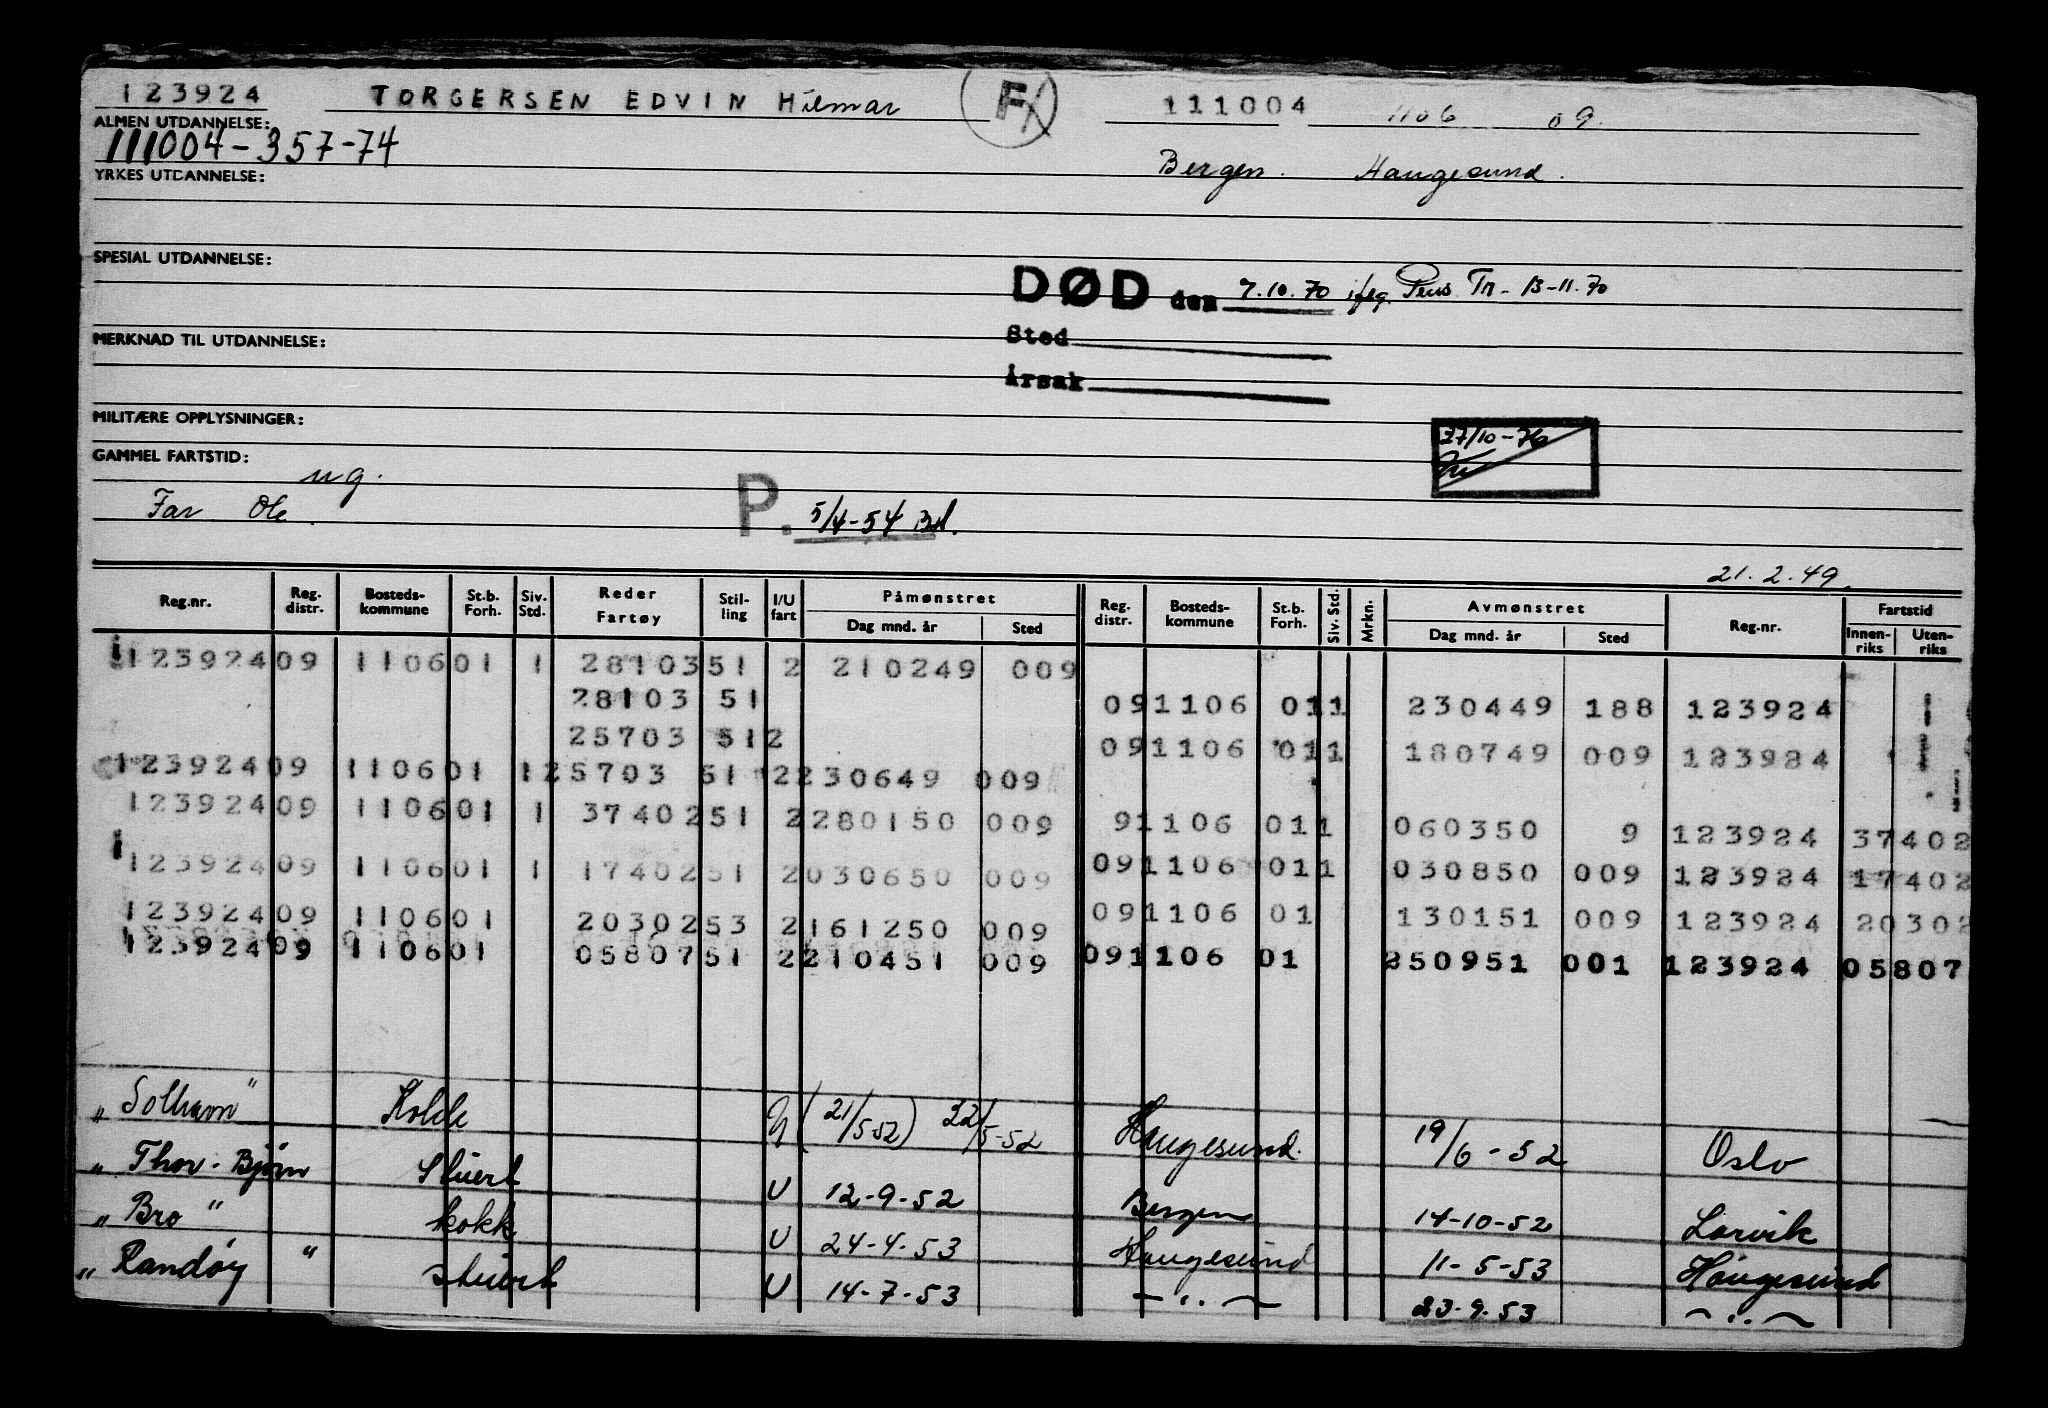 123924 TORGERSEN EDVIN Hilmar F 111004 1106 09.
ALMEN UTDANNELSE:
111004-357-74
Bergen. Haugesund.
YRKES UTDANNELSE:
SPESIAL UTDANNELSE:
DØD den 7.10.70 iflg. Pens Tr - 13-11.70
Sted
MERKNAD TIL UTDANNELSE:
Årsak
MILITÆRE OPPLYSNINGER:
27/10-76
GAMMEL FARTSTID:
ug.
Far Ole. P. 5/4-54
21.2.49.
Reg.nr. Reg. distr. Bosteds-kommune St.b. Forh. Siv. Std. Reder Fartøy Stil-ling I/U fart Påmønstret Dag mnd. år Sted Reg. distr. Bosteds-kommune St.b. Forh. Siv. Std. Mrkn. Avmønstret Dag mnd. år Sted Reg.nr. Fartstid Innen-riks Uten-riks
123924 09 1106 01 1 28103 51 2 210249 009
28103 51 09 1106 01 1 230449 188 123924
25703 51 2 09 1106 01 1 180749 009 123924
123924 09 1106 01 1 25703 51 2 230649 009
123924 09 1106 01 1 37402 51 2 280150 009 9 1106 01 1 060350 9 123924 37402
123924 09 1106 01 1 17402 51 2 030650 009 09 1106 01 1 030850 009 123924 17402
123924 09 1106 01 20302 53 2 161250 009 09 1106 01 130151 009 123924 20302
123924 09 1106 01 05807 51 2 210451 009 09 1106 01 250951 001 123924 05807
„Solhavn" (21/5 52) 22/5-52 Haugesund. 19/6-52 Oslo
„Thor-Bjørn Stuert U 12-9-52 Bergen 14-10-52 Larvik
„Bro" kokk U 24-4-53 Haugesund 11-5-53 Haugesund
„Randøy" stuert U 14-7-53 —..— 23-9-53 —..—